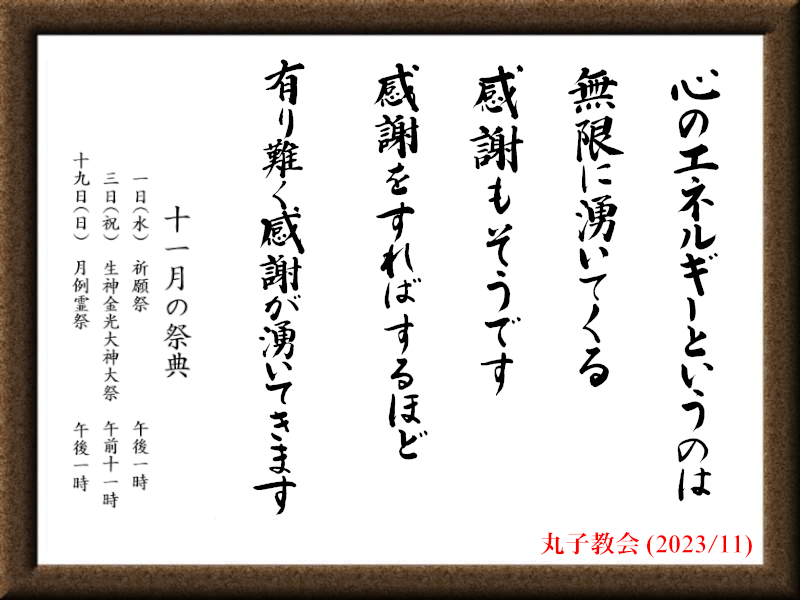 心のエネルギーというのは
無限に湧いてくる
感謝もそうです
感謝をすればするほど
有り難く感謝が湧いてきます
十一月の祭典
一日(水) 祈願祭 午後一時
三日(祝) 生神金光大神大祭 午前十一時
十九日(日) 月例霊祭 午後一時
丸子教会 (2023/11)